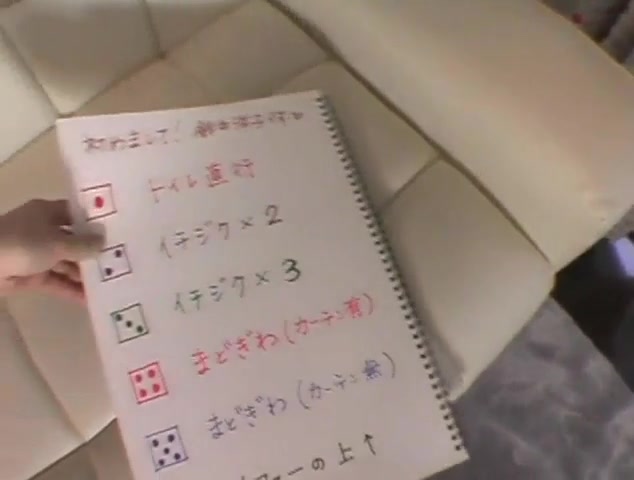 初めまして!
トイレ直行
イチジク×2
イチジク×3
まどぎわ(カーテン有)
まどぎわ(カーテン無)
ーの上↑